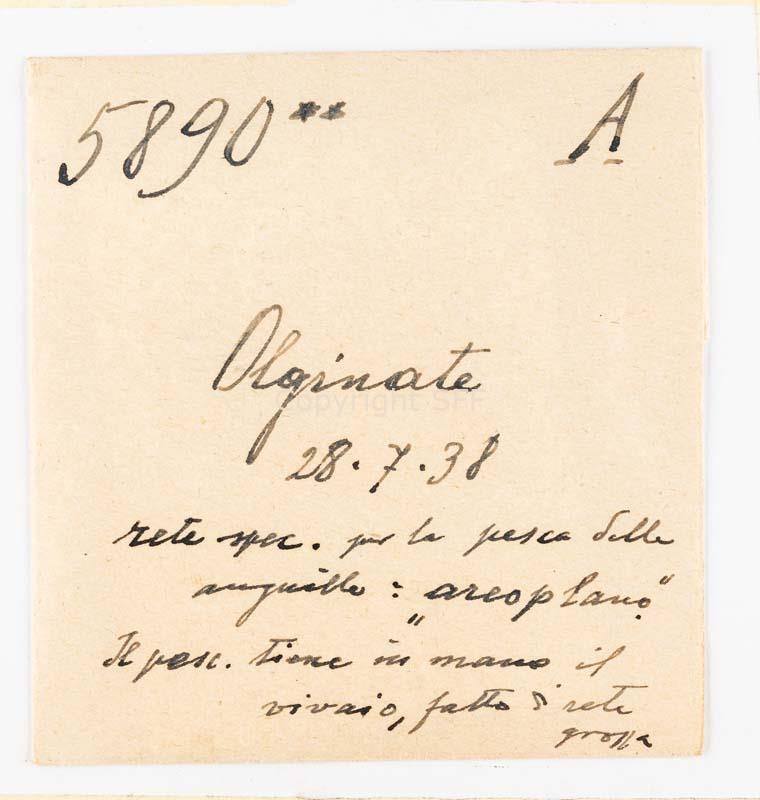 5890** A
Olginate
Copyright SFF
28.7.38
rete spec. per la pesca delle
anguille: "areoplano"
Il pesc. tiene in mano il
vivaio, fatto di rete
grossa